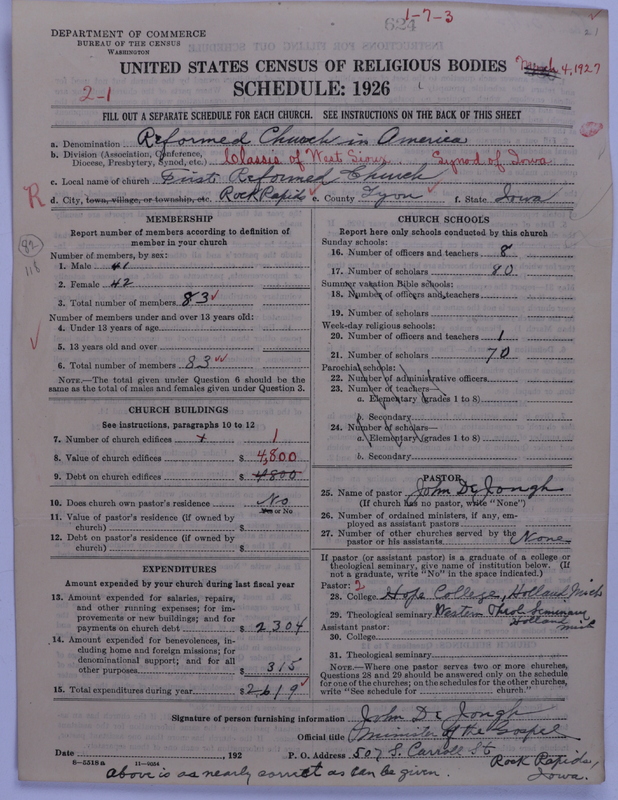 1-7-3
624
21
DEPARTMENT OF COMMERCE
BUREAU OF THE CENSUS
WASHINGTON
UNITED STATES CENSUS OF RELIGIOUS BODIES
March 4, 1927
SCHEDULE: 1926
2-1
FILL OUT A SEPARATE SCHEDULE FOR EACH CHURCH. SEE INSTRUCTIONS ON THE BACK OF THIS SHEET
a. Denomination Reformed Church in America
b. Division (Association, Conference, Diocese, Presbytery, Synod, etc.) Classis of West Sioux Synod of Iowa
c. Local name of church First Reformed Church
R d. City, town, village, or township, etc. Rock Rapids e. County Lyon f. State Iowa
82
118
MEMBERSHIP
Report number of members according to definition of
member in your church
Number of members, by sex:
1. Male 41
2. Female 42
3. Total number of members 83
Number of members under and over 13 years old:
4. Under 13 years of age
5. 13 years old and over
6. Total number of members 83
NOTE.—The total given under Question 6 should be the
same as the total of males and females given under Question 3.
CHURCH BUILDINGS
See instructions, paragraphs 10 to 12
7. Number of church edifices 1
8. Value of church edifices $ 4,800
9. Debt on church edifices $ 4800
10. Does church own pastor's residence No
Yes or No
11. Value of pastor's residence (if owned by
church) $
12. Debt on pastor's residence (if owned by
church) $
EXPENDITURES
Amount expended by your church during last fiscal year
13. Amount expended for salaries, repairs,
and other running expenses; for im-
provements or new buildings; and for
payments on church debt $ 2304
14. Amount expended for benevolences, in-
cluding home and foreign missions; for
denominational support; and for all
other purposes $ 315
15. Total expenditures during year $ 2619
CHURCH SCHOOLS
Report here only schools conducted by this church
Sunday schools:
16. Number of officers and teachers 8
17. Number of scholars 80
Summer vacation Bible schools:
18. Number of officers and teachers
19. Number of scholars
Week-day religious schools:
20. Number of officers and teachers 1
21. Number of scholars 70
Parochial schools:
22. Number of administrative officers
23. Number of teachers—
a. Elementary (grades 1 to 8)
b. Secondary
24. Number of scholars—
a. Elementary (grades 1 to 8)
b. Secondary
PASTOR
25. Name of pastor John De Jongh
(If church has no pastor, write "None")
26. Number of ordained ministers, if any, em-
ployed as assistant pastors
27. Number of other churches served by the
pastor or his assistants None
If pastor (or assistant pastor) is a graduate of a college or
theological seminary, give name of institution below. (If
not a graduate, write "No" in the space indicated.)
Pastor: 2
28. College Hope College, Holland Mich
29. Theological seminary Western Theol. Seminary
Holland
Mich
Assistant pastor:
30. College
31. Theological seminary
NOTE.—Where one pastor serves two or more churches,
Questions 28 and 29 should be answered only on the schedule
for one of the churches; on the schedules for the other churches,
write "See schedule for church."
Signature of person furnishing information John De Jongh
Official title Minister of the Gospel
Date , 192 P. O. Address 507 S. Carroll St
Rock Rapids,
Iowa.
8-5518a 11-9054
above is as nearly correct as can be given.